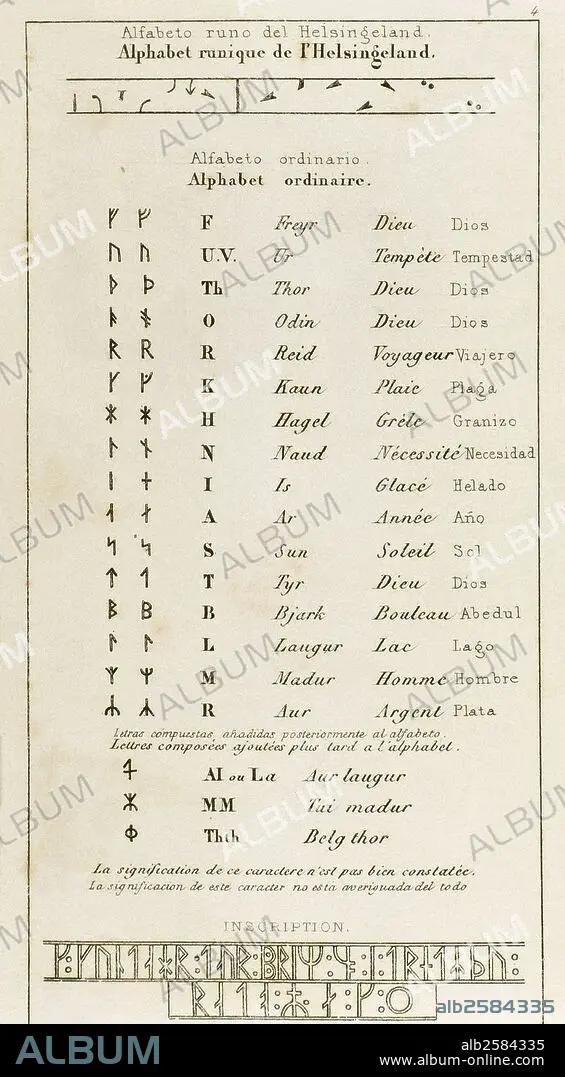 4
Alfabeto runo del Helsingeland.
Alphabet runique de l'Helsingeland.
Alfabeto ordinario.
Alphabet ordinaire.
ᚠ F Freyr Dieu Dios
ᚢ ᚢ U.V. Ur Tempète Tempestad
ᚦ ᚦ Th Thor Dieu Dios
ᚮ O Odin Dieu Dios
ᚱ ᚱ R Reid Voyageur Viajero
ᚴ ᚴ K Kaun Plaie Plaga
ᚼ ᚼ H Hagel Grêle Granizo
ᚿ ᚾ N Naud Nécessité Necesidad
ᛁ I Is Glacé Helado
ᛆ A Ar Année Año
ᛋ ᛋ S Sun Soleil Sol
ᛏ ᛐ T Tyr Dieu Dios
ᛒ ᛒ B Bjark Bouleau Abedul
ᛚ ᛚ L Laugur Lac Lago
ᛉ ᛘ M Madur Homme Hombre
ᛦ ᛦ R Aur Argent Plata
Letras compuestas, añadidas posteriormente al alfabeto.
Lettres composées ajoutées plus tard a l'alphabet.
AI ou La Aur laugur
MM Tui madur
Thth Belg thor
La signification de ce caractere n'est pas bien constatée.
La significacion de este caracter no esta averiguada del todo
INSCRIPTION.
alb2584335
ALBUM
alb2584335
www.album-online.com